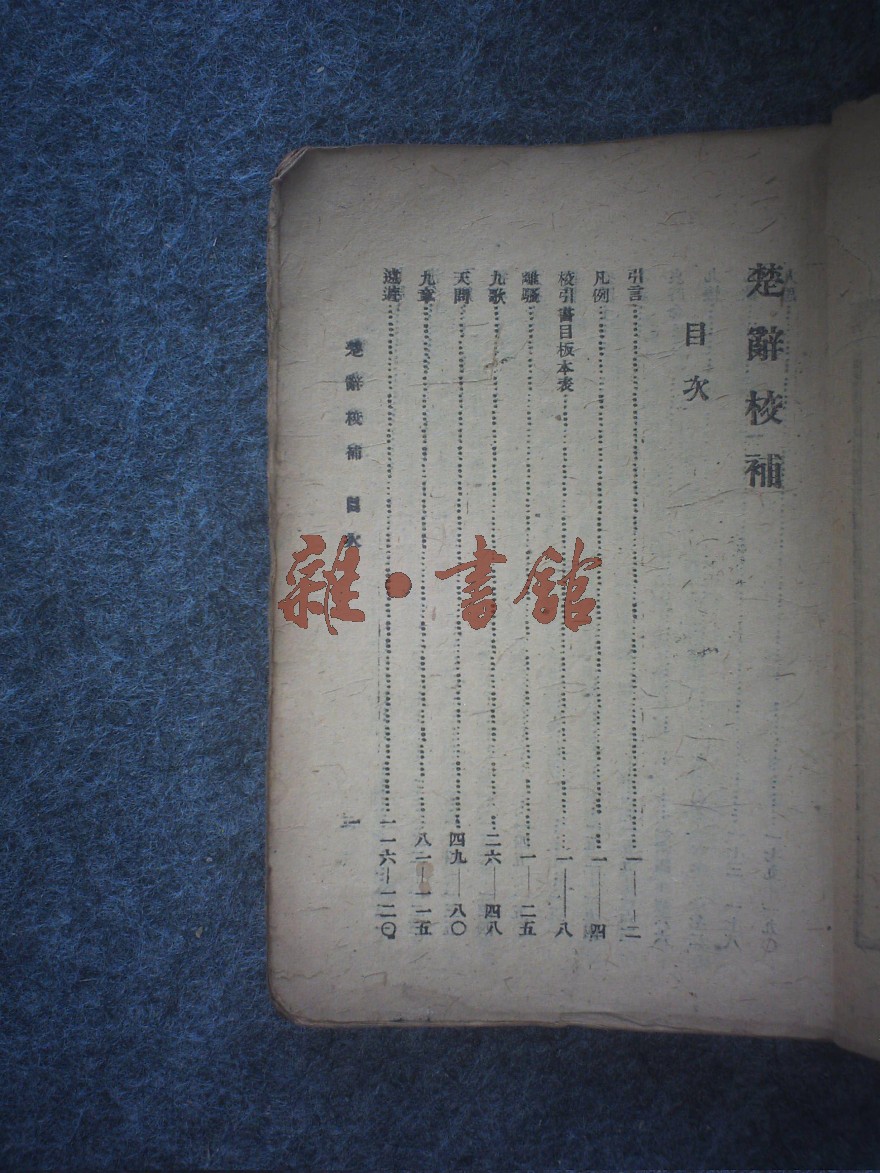 楚辭校補
目次
引言……一——二
凡例……一——四
校引書目板本表……一——八
離騷……一——二五
九歌……二六——四八
天問……四九——八〇
九章……八一——一一五
遠遊……一一六——一二〇
楚辭校補 目次
一
雜·書館